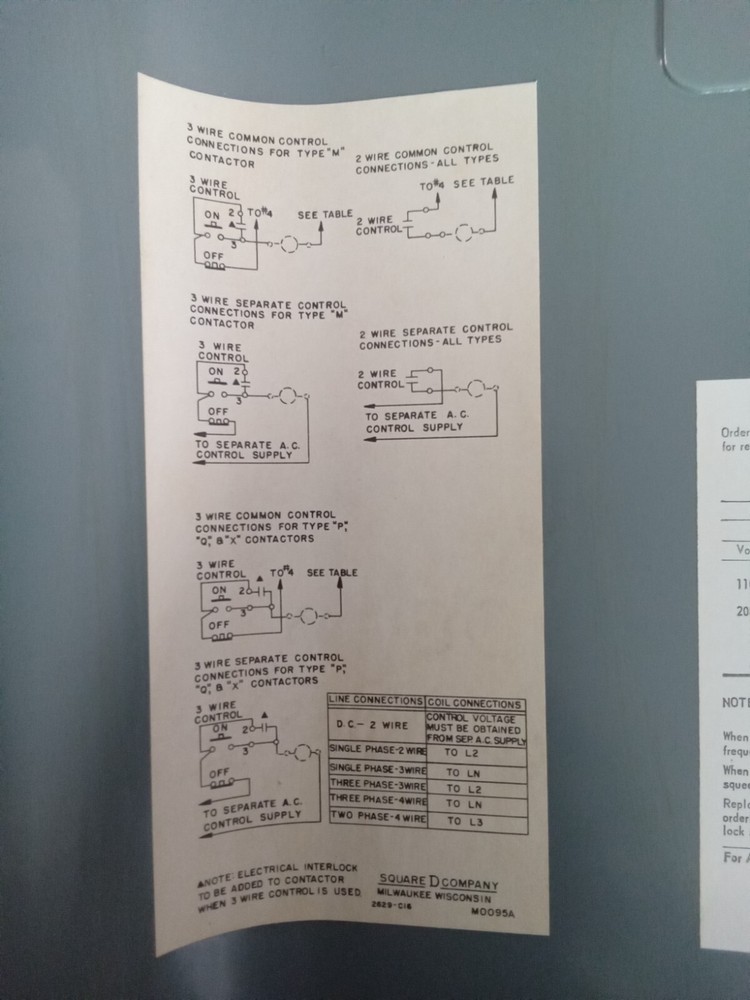 3 WIRE COMMON CONTROL
CONNECTIONS FOR TYPE "M"
CONTACTOR
3 WIRE
CONTROL
ON 2 TO#4 SEE TABLE
▲
3
OFF
2 WIRE COMMON CONTROL
CONNECTIONS-ALL TYPES
TO#4 SEE TABLE
2 WIRE
CONTROL
3 WIRE SEPARATE CONTROL
CONNECTIONS FOR TYPE "M"
CONTACTOR
3 WIRE
CONTROL
ON 2
▲
3
OFF
TO SEPARATE A.C.
CONTROL SUPPLY
2 WIRE SEPARATE CONTROL
CONNECTIONS-ALL TYPES
2 WIRE
CONTROL
TO SEPARATE A.C.
CONTROL SUPPLY
3 WIRE COMMON CONTROL
CONNECTIONS FOR TYPE "P",
"Q", & "X" CONTACTORS
3 WIRE
CONTROL ▲ TO#4 SEE TABLE
ON 2
3
OFF
3 WIRE SEPARATE CONTROL
CONNECTIONS FOR TYPE "P",
"Q", & "X" CONTACTORS
3 WIRE
CONTROL ▲
ON 2
3
OFF
TO SEPARATE A.C.
CONTROL SUPPLY
LINE CONNECTIONS COIL CONNECTIONS
D.C.- 2 WIRE CONTROL VOLTAGE
MUST BE OBTAINED
FROM SEP. A.C. SUPPLY
SINGLE PHASE-2 WIRE TO L2
SINGLE PHASE-3WIRE TO LN
THREE PHASE-3WIRE TO L2
THREE PHASE-4WIRE TO LN
TWO PHASE-4 WIRE TO L3
▲NOTE: ELECTRICAL INTERLOCK
TO BE ADDED TO CONTACTOR
WHEN 3 WIRE CONTROL IS USED
SQUARE D COMPANY
MILWAUKEE WISCONSIN
2629-C16
M0095A
Order
for re
Vo
11
20
NOT
When
frequ
When
sque
Repl
order
lock
For A